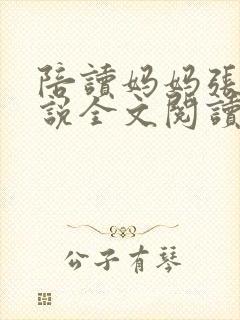 陪讀妈妈張
說全文閱讀
公子有琴